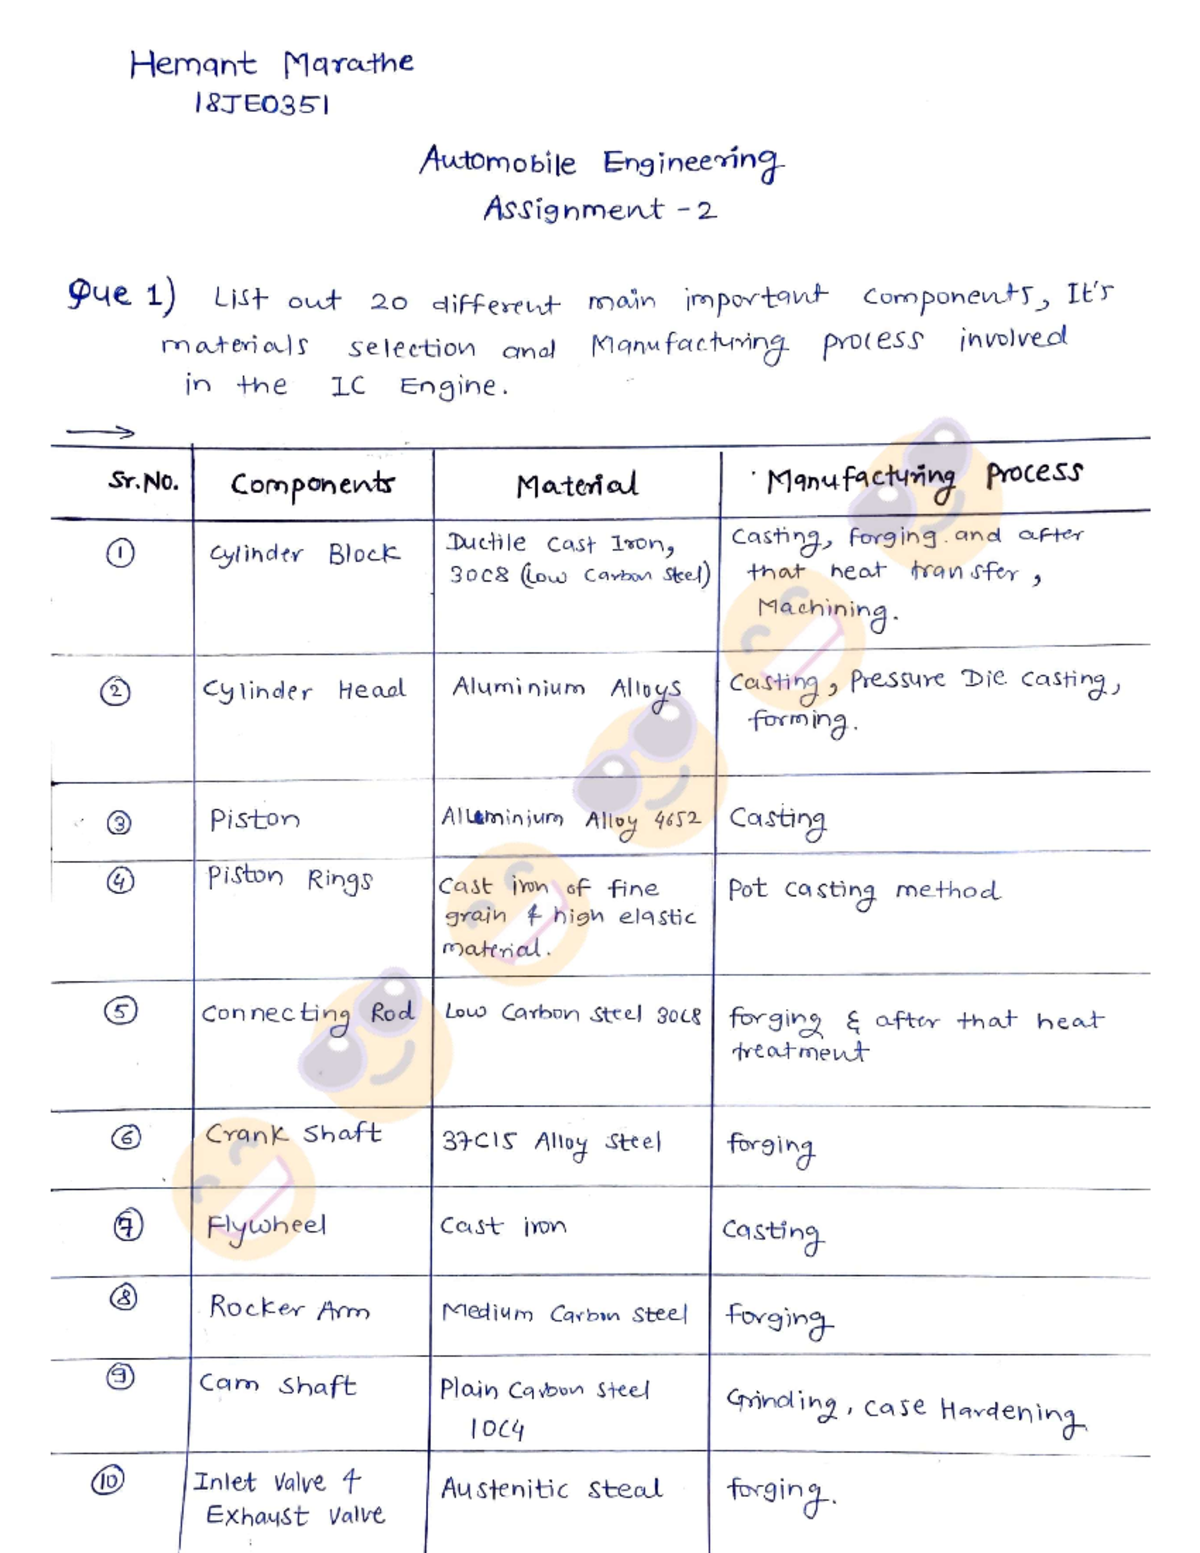 Hemant Marathe
18JE0351
Automobile Engineering
Assignment - 2
Que 1) List out 20 different main important components, It's
materials selection and Manufacturing process involved
in the IC Engine.
Sr.No. Components Material Manufacturing Process
1 Cylinder Block Ductile Cast Iron, Casting, forging and after
30C8 (Low Carbon Steel) that heat transfer,
Machining.
2 Cylinder Head Aluminium Alloys Casting, Pressure Die casting,
forming.
3 Piston Alluminium Alloy 4652 Casting
4 Piston Rings Cast iron of fine Pot casting method
grain & high elastic
material.
5 Connecting Rod Low Carbon Steel 30C8 forging & after that heat
treatment
6 Crank Shaft 37C15 Alloy Steel forging
7 Flywheel Cast iron Casting
8 Rocker Arm Medium Carbon Steel forging
9 Cam Shaft Plain Carbon Steel Grinding, Case Hardening
10C4
10 Inlet Valve & Austenitic Steal forging.
Exhaust Valve